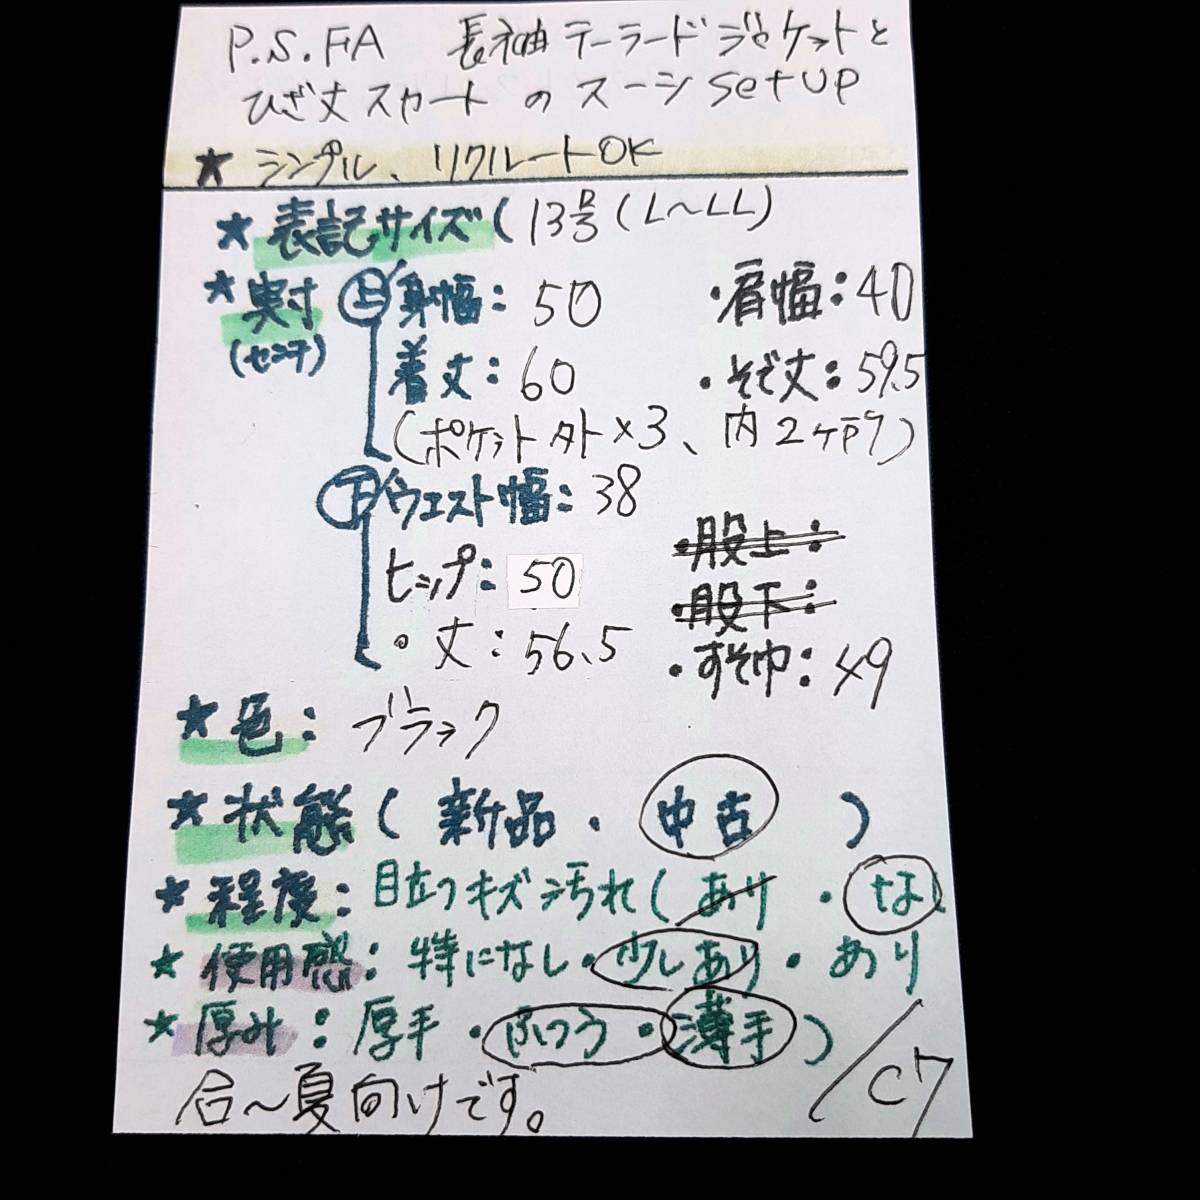 P.S.FA 長袖テーラードジャケットと
ひざ丈スカートのスーツ SetUP
★ シンプル、リクルートOK
★ 表記サイズ ( 13号 (L～LL)
★ 実寸 上 身幅: 50 ・肩幅: 40
(センチ) 着丈: 60 ・そで丈: 59.5
(ポケット外×3、内2ヶ所)
下 ウエスト幅: 38
・股上:
ヒップ: 50
・股下:
・丈: 56.5 ・すそ巾: 49
★ 色: ブラック
★ 状態 ( 新品 ・ 中古 )
★ 程度: 目立つキズ汚れ ( あり ・ なし
★ 使用感: 特になし・少しあり・あり
★ 厚み: 厚手・ふつう・薄手)
合～夏向けです。 /C7